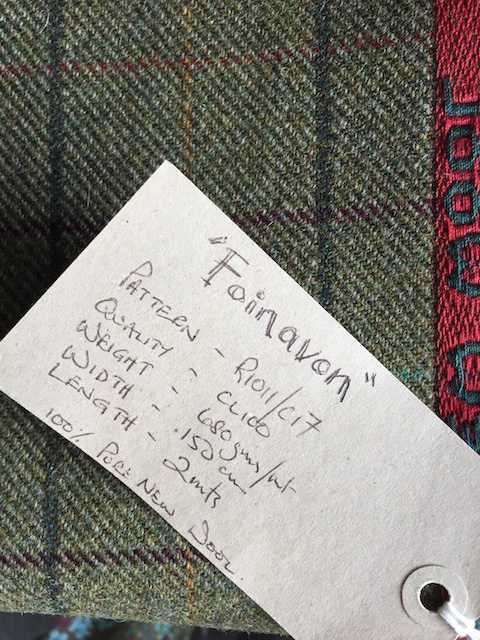 "Foinavon"
PATTERN - R1011/C17
QUALITY - CL100
WEIGHT - 680gms/mt
WIDTH - 150cm
LENGTH - 2mts
100% PURE NEW WOOL.
WOOL